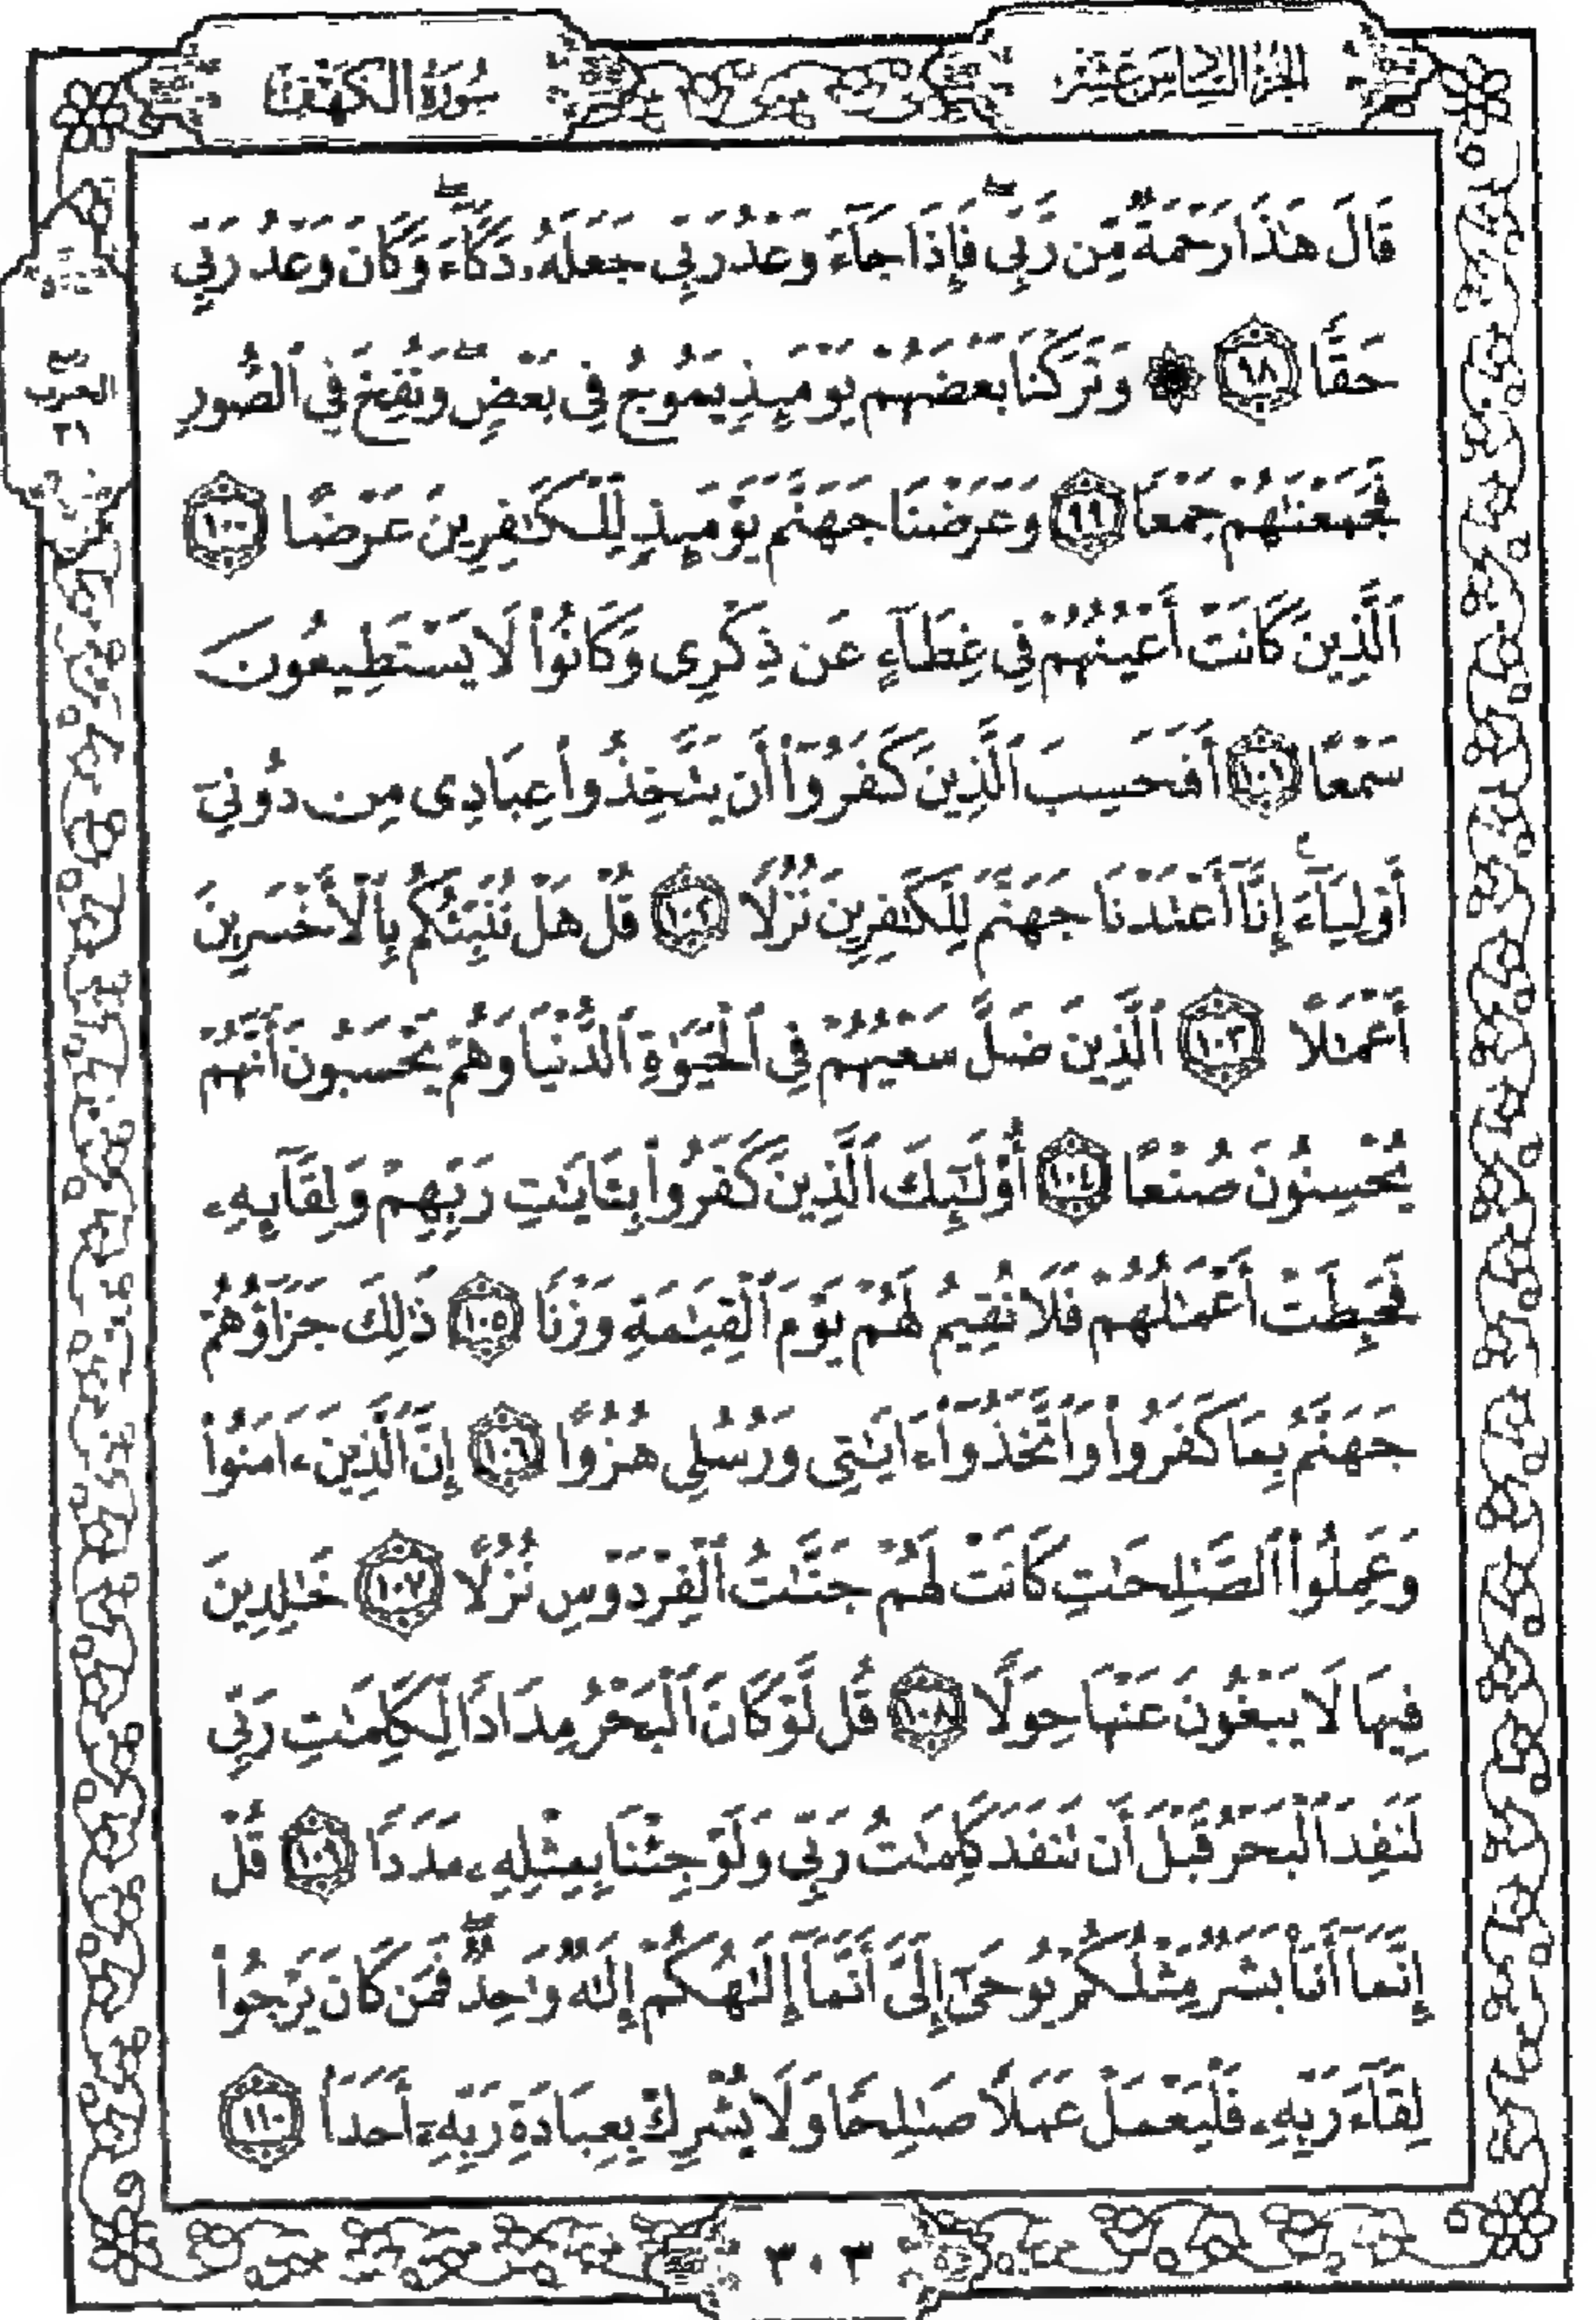 الجزء السادس عشر
سورة الكهف
قَالَ هَٰذَا رَحْمَةٌ مِّن رَّبِّي ۖ فَإِذَا جَآءَ وَعْدُ رَبِّي جَعَلَهُۥ دَكَّآءَ ۖ وَكَانَ وَعْدُ رَبِّي
حَقًّا ٩٨ ۞ وَتَرَكْنَا بَعْضَهُمْ يَوْمَئِذٍ يَمُوجُ فِي بَعْضٍ ۖ وَنُفِخَ فِي ٱلصُّورِ
ربع
الحزب
٣١
فَجَمَعْنَٰهُمْ جَمْعًا ٩٩ وَعَرَضْنَا جَهَنَّمَ يَوْمَئِذٍ لِّلْكَٰفِرِينَ عَرْضًا ١٠٠
ٱلَّذِينَ كَانَتْ أَعْيُنُهُمْ فِي غِطَآءٍ عَن ذِكْرِي وَكَانُوا۟ لَا يَسْتَطِيعُونَ
سَمْعًا ١٠١ أَفَحَسِبَ ٱلَّذِينَ كَفَرُوٓا۟ أَن يَتَّخِذُوا۟ عِبَادِي مِن دُونِيٓ
أَوْلِيَآءَ ۚ إِنَّآ أَعْتَدْنَا جَهَنَّمَ لِلْكَٰفِرِينَ نُزُلًا ١٠٢ قُلْ هَلْ نُنَبِّئُكُم بِٱلْأَخْسَرِينَ
أَعْمَٰلًا ١٠٣ ٱلَّذِينَ ضَلَّ سَعْيُهُمْ فِي ٱلْحَيَوٰةِ ٱلدُّنْيَا وَهُمْ يَحْسَبُونَ أَنَّهُمْ
يُحْسِنُونَ صُنْعًا ١٠٤ أُو۟لَٰٓئِكَ ٱلَّذِينَ كَفَرُوا۟ بِـَٔايَٰتِ رَبِّهِمْ وَلِقَآئِهِۦ
فَحَبِطَتْ أَعْمَٰلُهُمْ فَلَا نُقِيمُ لَهُمْ يَوْمَ ٱلْقِيَٰمَةِ وَزْنًا ١٠٥ ذَٰلِكَ جَزَآؤُهُمْ
جَهَنَّمُ بِمَا كَفَرُوا۟ وَٱتَّخَذُوٓا۟ ءَايَٰتِي وَرُسُلِي هُزُوًا ١٠٦ إِنَّ ٱلَّذِينَ ءَامَنُوا۟
وَعَمِلُوا۟ ٱلصَّٰلِحَٰتِ كَانَتْ لَهُمْ جَنَّٰتُ ٱلْفِرْدَوْسِ نُزُلًا ١٠٧ خَٰلِدِينَ
فِيهَا لَا يَبْغُونَ عَنْهَا حِوَلًا ١٠٨ قُل لَّوْ كَانَ ٱلْبَحْرُ مِدَادًا لِّكَلِمَٰتِ رَبِّي
لَنَفِدَ ٱلْبَحْرُ قَبْلَ أَن تَنفَدَ كَلِمَٰتُ رَبِّي وَلَوْ جِئْنَا بِمِثْلِهِۦ مَدَدًا ١٠٩ قُلْ
إِنَّمَآ أَنَا۠ بَشَرٌ مِّثْلُكُمْ يُوحَىٰٓ إِلَيَّ أَنَّمَآ إِلَٰهُكُمْ إِلَٰهٌ وَٰحِدٌ ۖ فَمَن كَانَ يَرْجُوا۟
لِقَآءَ رَبِّهِۦ فَلْيَعْمَلْ عَمَلًا صَٰلِحًا وَلَا يُشْرِكْ بِعِبَادَةِ رَبِّهِۦٓ أَحَدًۢا ١١٠
٣٠٣